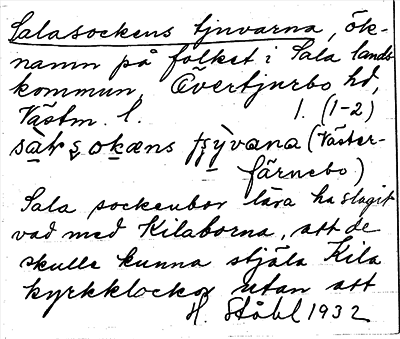 Salasockens tjuvarna, ök-
namn på folket i Sala lands
kommun, Övertjurbo hd,
Västm. l. 1. (1-2)
(Väster-
färnebo)
Sala sockenbor lära ha slagit
vad med Kilaborna, att de
skulle kunna stjäla Kila
kyrkklockor utan att
H. Ståhl 1932